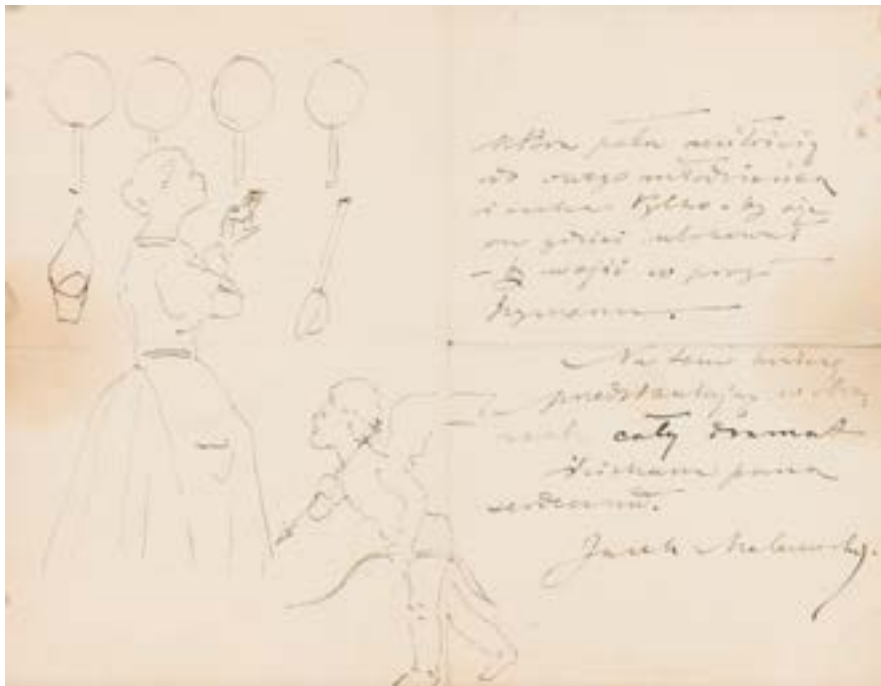 która pała miłością
do owego młodzieńca
i czeka tylko by się
on gdzieś ulokował
– by wejść w progi
Hymenu.
Na tem kończę
przedstawiając w obra
zach cały dramat
Ściskam pana
serdecznie.
Jacek Malczewski.